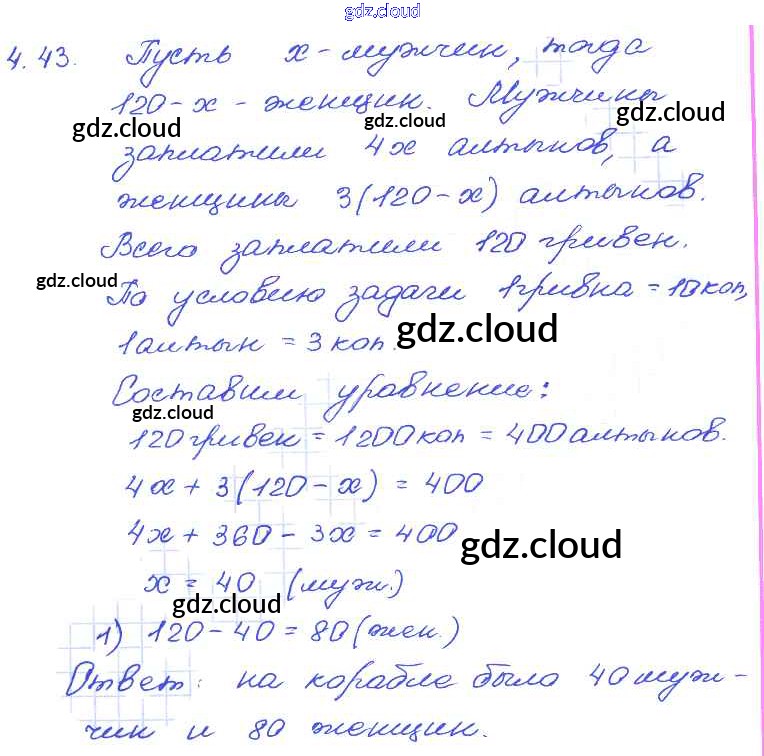 gdz.cloud
4.43. Пусть х - мужчин, тогда
120-х - женщин. Мужчины
gdz.cloud gdz.cloud gdz.cloud
заплатили 4х алтынов, а
женщины 3(120-х) алтынов.
Всего заплатили 120 гривен.
gdz.cloud
По условию задачи 1гривна = 10коп,
1алтын = 3 коп.
gdz.cloud
Составим уравнение:
gdz.cloud
120гривен = 1200коп = 400алтынов.
4х + 3(120 - х) = 400
4х + 360 - 3х = 400
gdz.cloud
х = 40 (муж.)
gdz.cloud
1) 120-40 = 80(жен.)
Ответ: на корабле было 40 муж-
чин и 80 женщин.